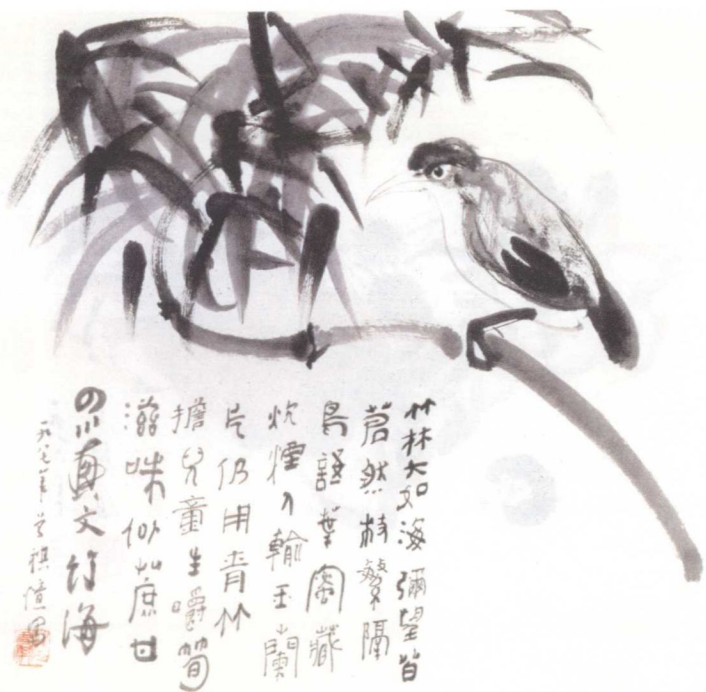 竹林大如海彌望皆
蒼然枝繁隔
鳥語葉密藏
炊煙入輸玉蘭
片仍用青竹
擔兒童生嚼筍
滋味似蔗甘
四川興文竹海
一九八七年曾祺憶寫